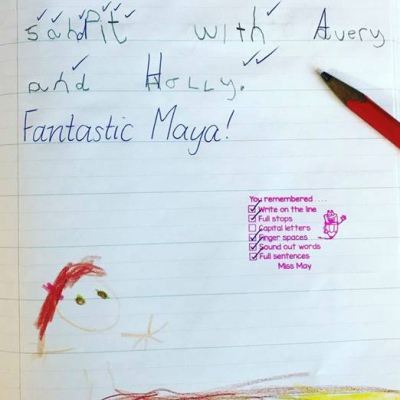 sandPit with Avery
and Holly.
Fantastic Maya!
You remembered ....
Write on the line
Full stops
Capital letters
Finger spaces
Sound out words
Full sentences
Miss May